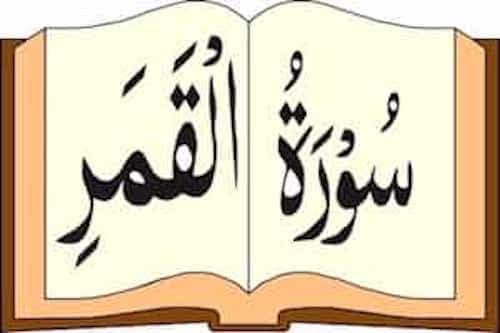 سُوْرَةُ الْقَمَرِ